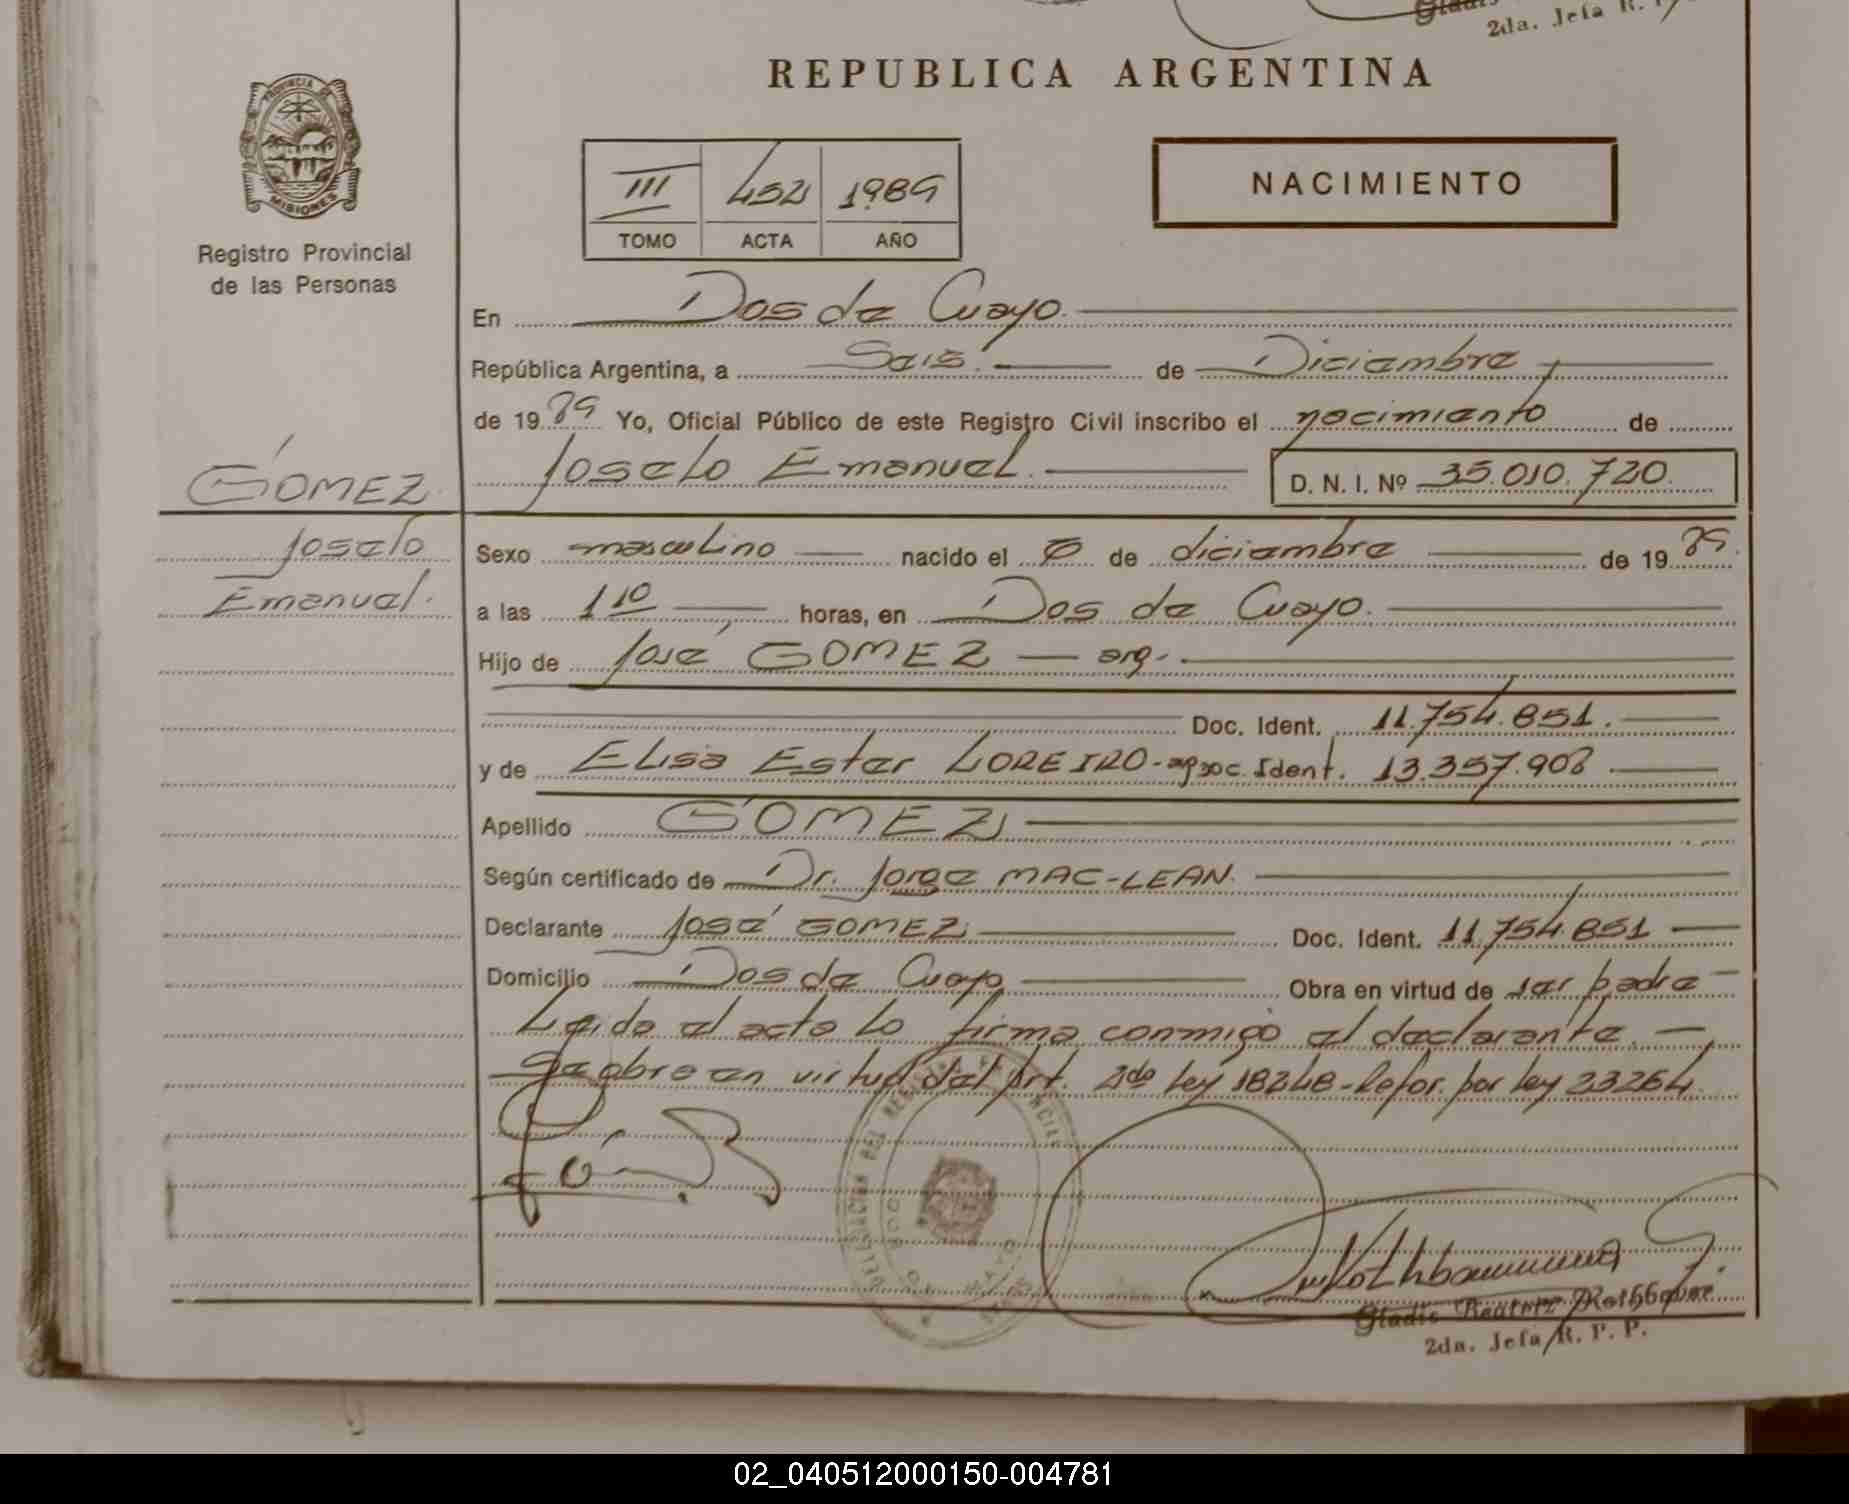 2da. Jefa R.
REPUBLICA ARGENTINA
PROVINCIA DE
MISIONES
Registro Provincial
de las Personas
III 452 1989
TOMO ACTA AÑO
NACIMIENTO
En Dos de Mayo.
República Argentina, a Seis. de Diciembre
de 1989 Yo, Oficial Público de este Registro Civil inscribo el nacimiento de
GÓMEZ
Joselo Emanuel. D. N. I. Nº 35.010.720.
Joselo
Emanuel.
Sexo masculino nacido el de diciembre de 1989.
a las 1 10 horas, en Dos de Mayo.
Hijo de José GÓMEZ — arg.
Doc. Ident. 11.754.851.
y de Elisa Ester LOREIRO - Doc. Ident. 13.357.908
Apellido GÓMEZ
Según certificado de Dr. Jorge MAC-LEAN.
Declarante José GOMEZ Doc. Ident. 11.754.851
Domicilio Dos de Mayo Obra en virtud de ser padre
Leído el acta lo firma conmigo el declarante.
Se obra en virtud del Art. 2do ley 18248 - Refor. por ley 23264.
DELEGACION DEL REGISTRO PROVINCIAL
Gladis Beatriz
2da. Jefa R. P. P.
02_040512000150-004781